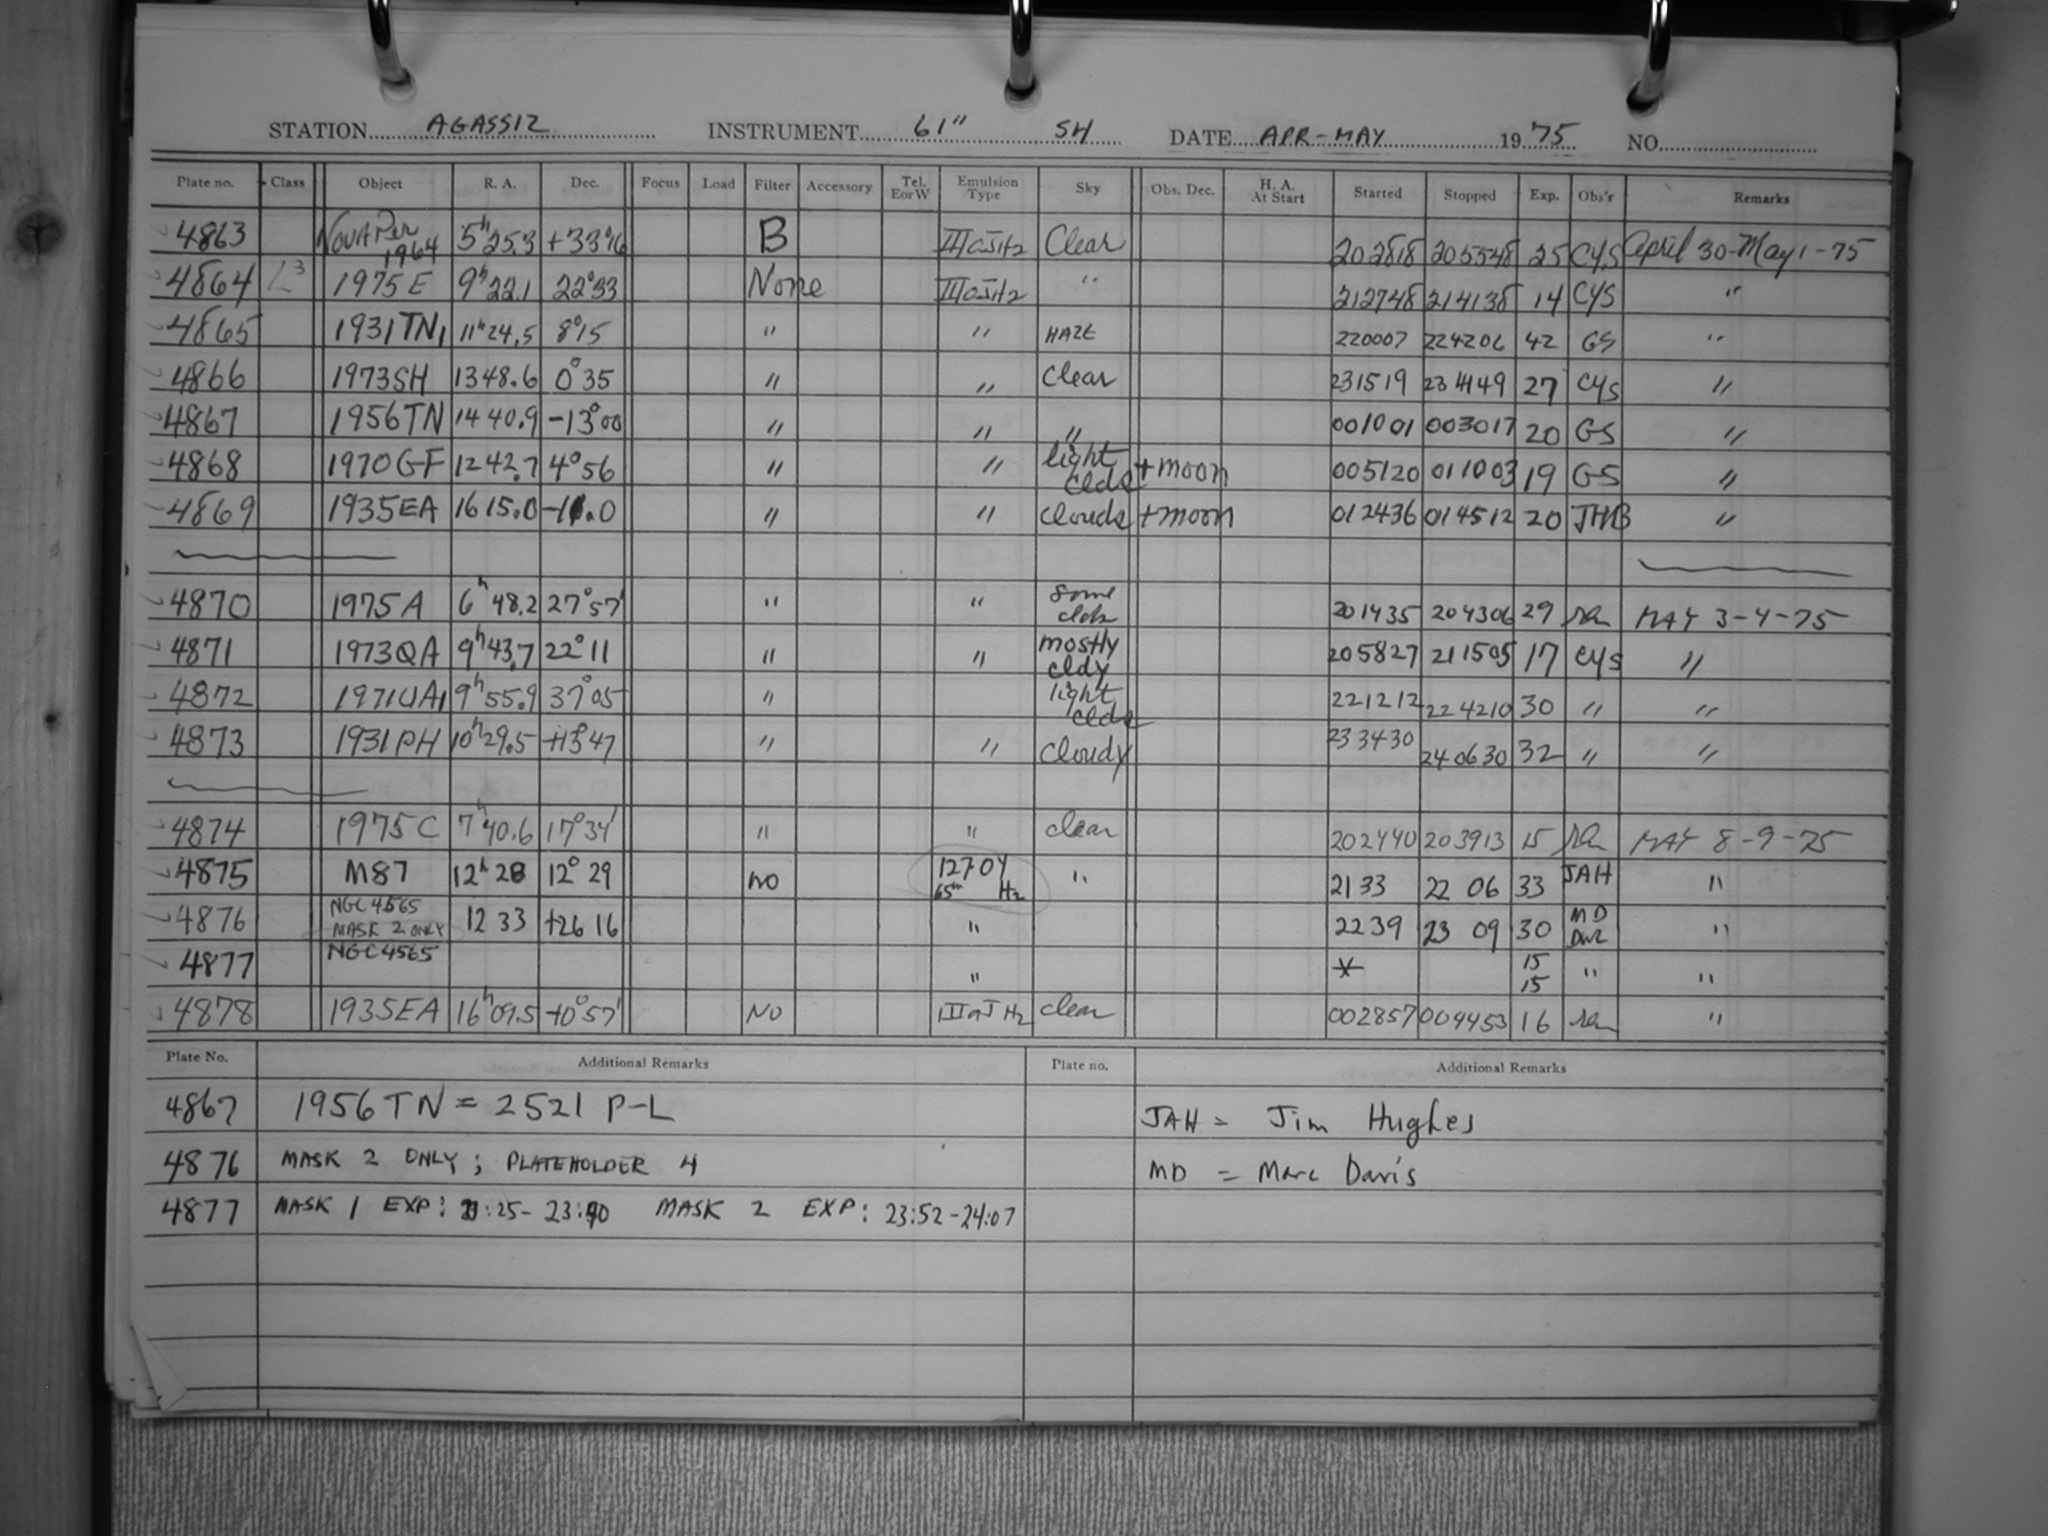 STATION AGASSIZ INSTRUMENT 61" SH DATE APR-MAY 1975 NO.
Plate no. Class Object R. A. Dec. Focus Load Filter Accessory Tel. E or W Emulsion Type Sky Obs. Dec. H. A. At Start Started Stopped Exp. Obs'r Remarks
4863 Nova Per 1964 5h 25.3 +33°16 B IIIaJH2 Clear 202818 205548 25 CYS April 30-May 1-75
4864 L3 1975E 9h 22.1 22°33 None IIIaJH2 " 212748 214138 14 CYS "
4865 1931TN1 11h 24.5 8°15 " " HAZE 220007 224206 42 GS "
4866 1973SH 13 48.6 0°35 " " Clear 231519 234149 27 CYS "
4867 1956TN 14 40.9 -13°00 " " " 001001 003017 20 GS "
4868 1970GF 12 42.7 4°56 " " light clds + moon 005120 011003 19 GS "
4869 1935EA 16 15.0 -11.0 " " clouds + moon 012436 014512 20 JHB "
4870 1975A 6h 48.2 27°57' " " some clds 201435 204306 29 MAY 3-4-75
4871 1973QA 9h 43.7 22°11 " " mostly cldy 205827 211505 17 CYS "
4872 1971UA1 9h 55.9 37°05 " light clds 221212 224210 30 " "
4873 1931PH 10h 29.5 +13°47 " " cloudy 233430 240630 32 " "
4874 1975C 7h 40.6 17°34' " " clear 202440 203913 15 MAY 8-9-75
4875 M87 12h 28 12°29 NO 127-04 65m H2 " 21 33 22 06 33 JAH "
4876 NGC4565 MASK 2 ONLY 12 33 +26 16 " 22 39 23 09 30 MD DWL "
4877 NGC4565 " * 15 15 " "
4878 1935EA 16h 09.5 +0°57' NO IIIaJ H2 clear 002857 004453 16 "
Plate No. Additional Remarks Plate no. Additional Remarks
4867 1956TN = 2521 P-L JAH = Jim Hughes
4876 MASK 2 ONLY; PLATEHOLDER 4 MD = Marc Davis
4877 MASK 1 EXP: 23:25- 23:40 MASK 2 EXP: 23:52-24:07